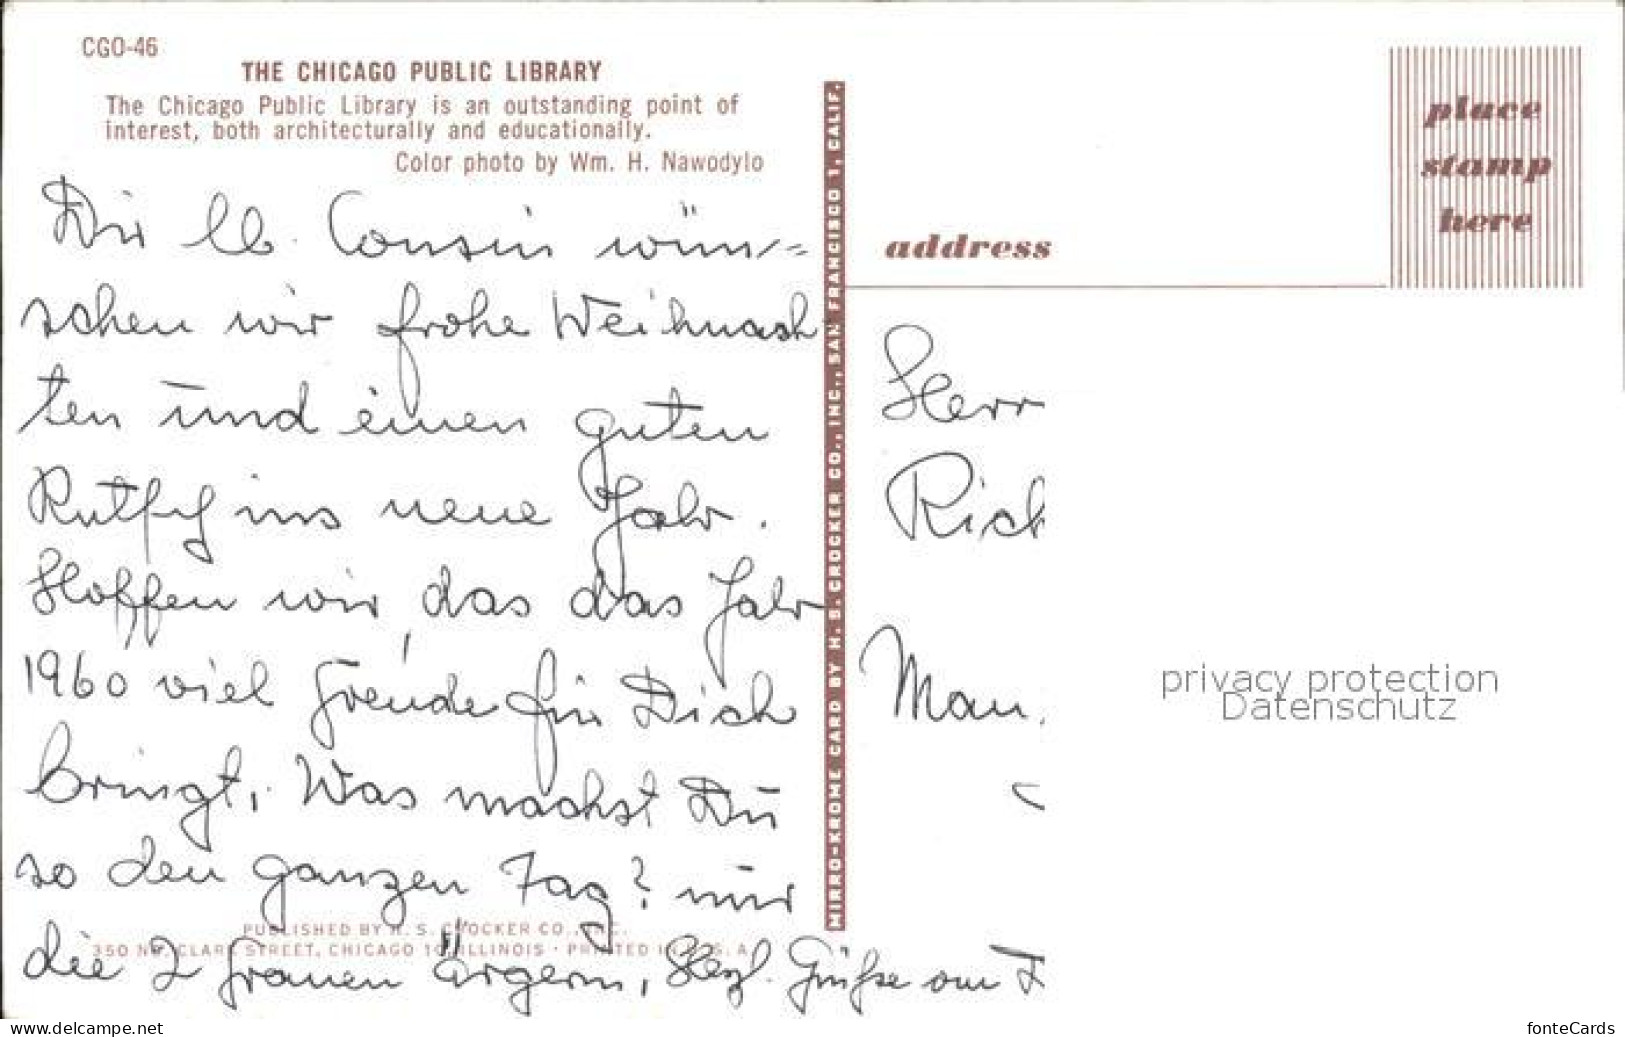 CGO-46
THE CHICAGO PUBLIC LIBRARY
The Chicago Public Library is an outstanding point of
interest, both architecturally and educationally.
Color photo by Wm. H. Nawodylo
Dir lb. Cousin wün=
schen wir frohe Weihnach
ten und einen guten
Rutsch ins neue Jahr.
Hoffen wir, das das Jahr
1960 viel Freude für Dich
bringt. Was machst Du
so den ganzen Tag? nur
die 2 Frauen Ärgern, Herzl. Grüße von
PUBLISHED BY H. S. CROCKER CO., INC.
350 NO. CLARK STREET, CHICAGO 10, ILLINOIS · PRINTED IN U.S.A.
MIRRO-KROME CARD BY H. S. CROCKER CO., INC., SAN FRANCISCO 1, CALIF.
place
stamp
here
address
Herr
Rich
Man
privacy protection
Datenschutz
www.ansichtskarte.com
fonteCards